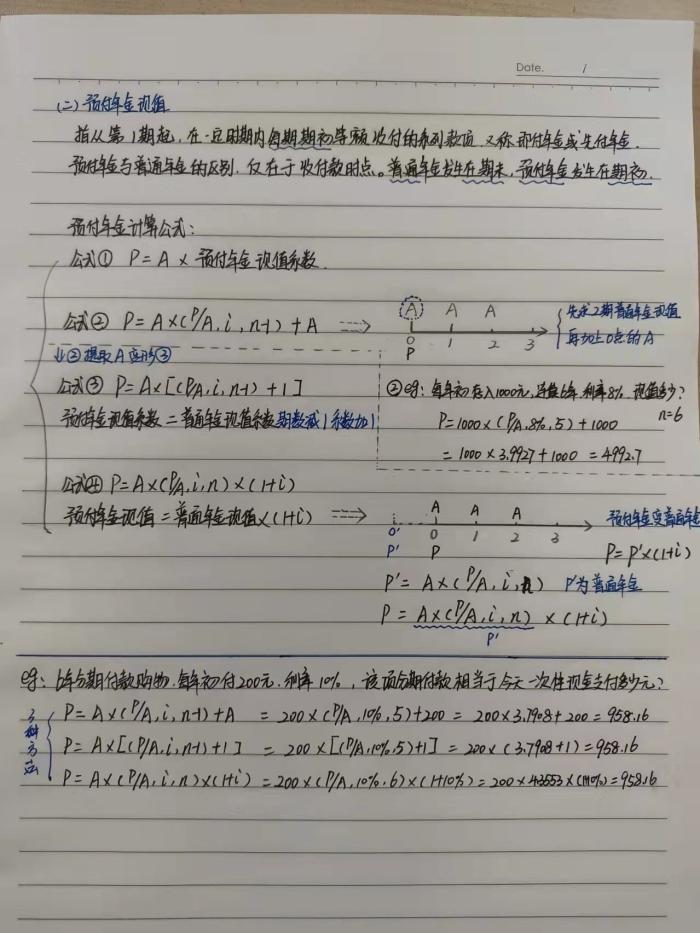 Date. /
(二)预付年金现值
指从第1期起,在一定时期内每期期初等额收付的系列款项,又称即付年金或先付年金.
预付年金与普通年金的区别,仅在于收付款时点。普通年金发生在期末,预付年金发生在期初.
预付年金计算公式:
公式① P=A×预付年金现值系数.
公式② P=A×(P/A,i,n-1)+A
A A A
0 1 2 3
P
先求2期普通年金现值
再加上0点的A
↓②提取A变形③
公式③ P=A×[(P/A,i,n-1)+1]
预付年金现值系数=普通年金现值系数期数减1系数加1
②例:每年初存入1000元,连续6年,利率8%,现值多少?
n=6
P=1000×(P/A,8%,5)+1000
=1000×3.9927+1000=4992.7
公式④ P=A×(P/A,i,n)×(1+i)
预付年金现值=普通年金现值×(1+i)
A A A
0' 0 1 2 3
P' P
预付年金变普通年金
P=P'×(1+i)
P'=A×(P/A,i,n) P'为普通年金
P=A×(P/A,i,n)×(1+i)
P'
例:6年分期付款购物,每年初付200元.利率10%,该项分期付款相当于今天一次性现金支付多少元?
3种方法
P=A×(P/A,i,n-1)+A =200×(P/A,10%,5)+200=200×3.7908+200=958.16
P=A×[(P/A,i,n-1)+1] =200×[(P/A,10%,5)+1]=200×(3.7908+1)=958.16
P=A×(P/A,i,n)×(1+i)=200×(P/A,10%,6)×(1+10%)=200×4.3553×(1+10%)=958.16